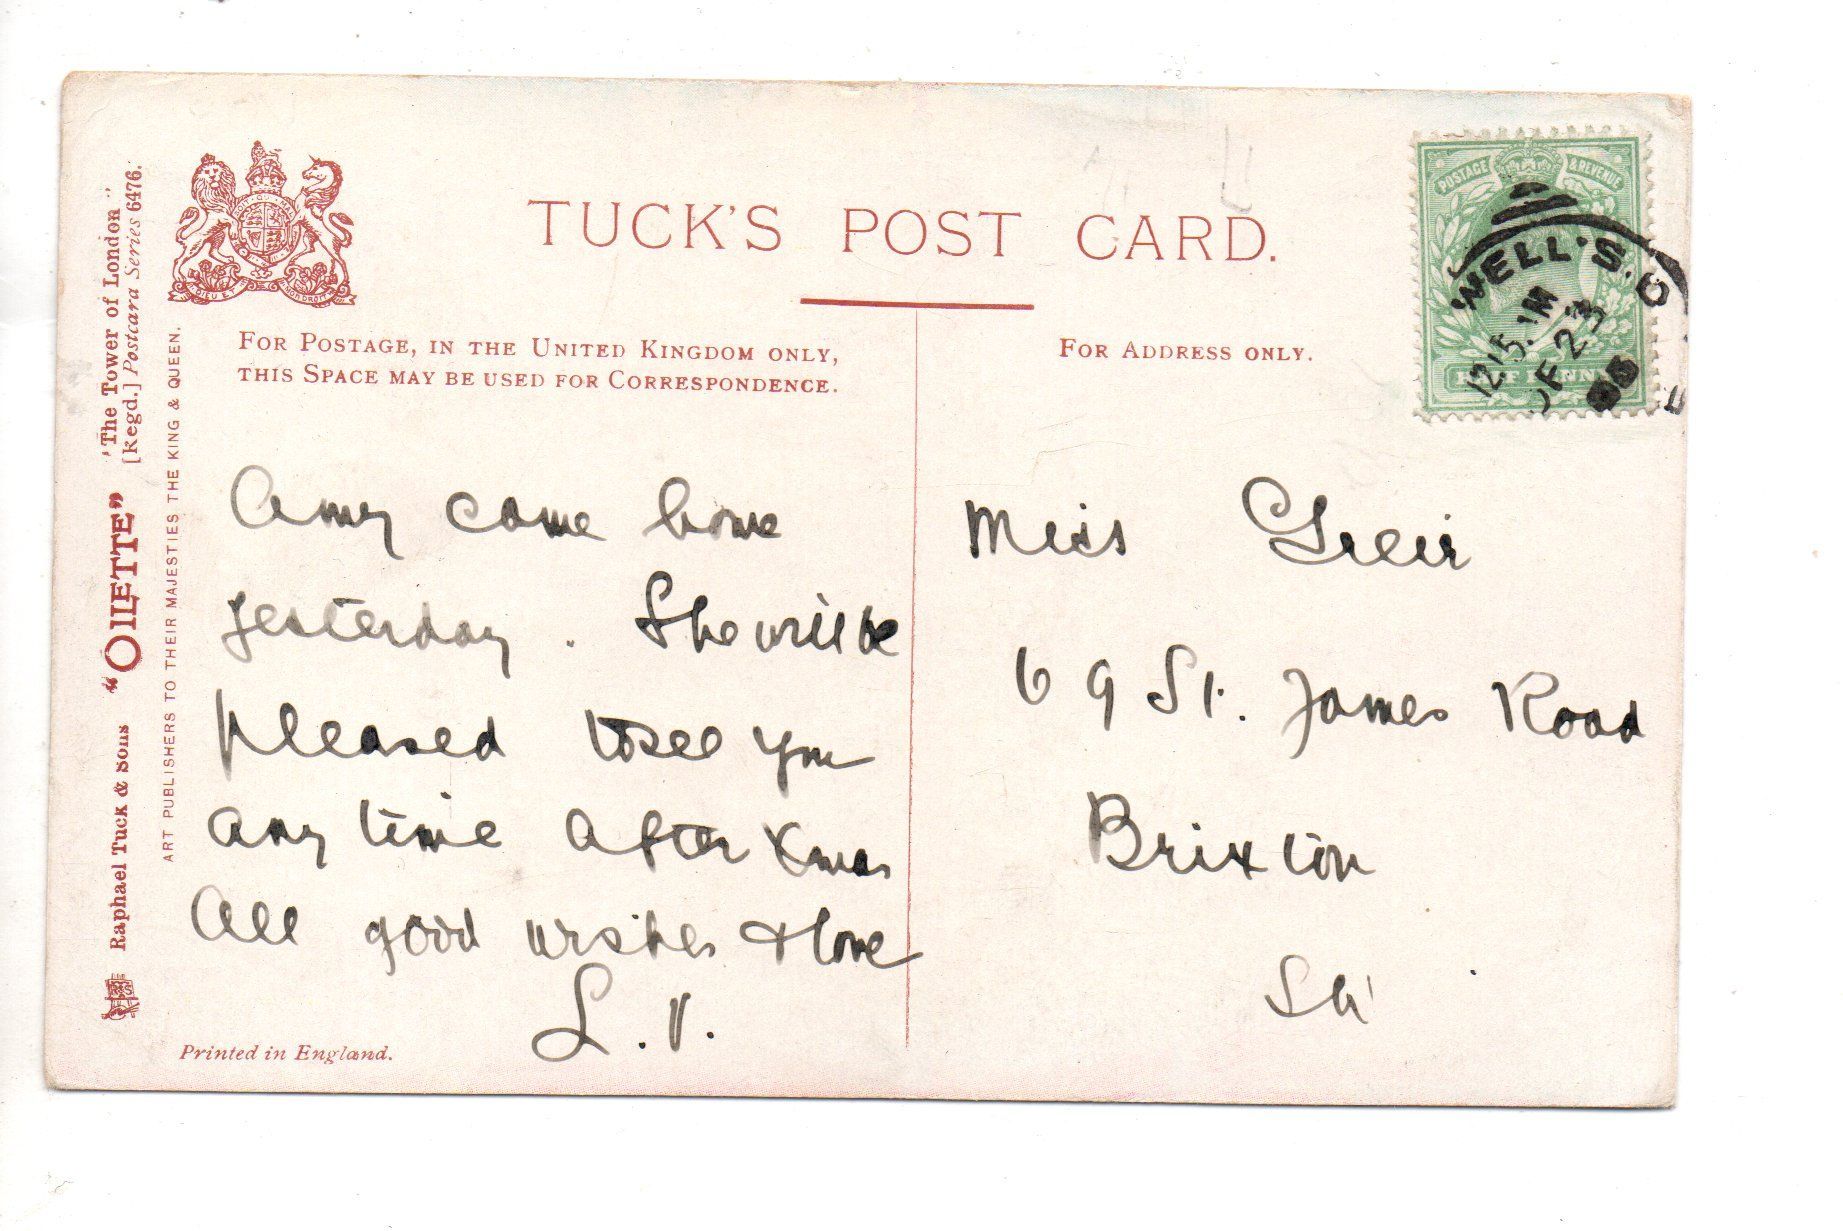 TUCK'S POST CARD.
FOR POSTAGE, IN THE UNITED KINGDOM ONLY,
THIS SPACE MAY BE USED FOR CORRESPONDENCE.
FOR ADDRESS ONLY.
POSTAGE & REVENUE
HALF PENNY
WELL'S.
12.15.
23
Raphael Tuck & Sons "OILETTE" "The Tower of London"
[Regd.] Postcard Series 6476.
ART PUBLISHERS TO THEIR MAJESTIES THE KING & QUEEN.
Amy came home
yesterday. She will be
pleased to see you
any time after Xmas
All good wishes & love
L.V.
Miss Greir
69 St. James Road
Brixton
Printed in England.